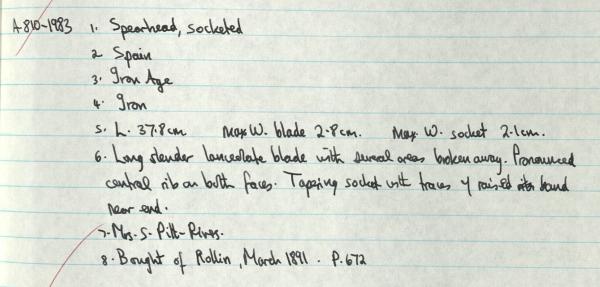 A.810-1983 1. Spearhead, socketed
2 Spain
3. Iron Age
4. Iron
5. L. 37.8cm Max W. blade 2.8cm. Max. W. socket 2.1cm.
6. Long slender lanceolate blade with several areas broken away. Pronounced
central rib on both faces. Tapering socket with traces of raised band
near end.
7. Mrs. S. Pitt-Rivers.
8. Bought of Rollin, March 1891. P.672